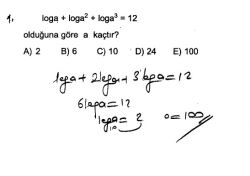 1. loga + loga² + loga³ = 12
olduğuna göre a kaçtır?
A) 2 B) 6 C) 10 D) 24 E) 100
loga + 2loga + 3loga = 12
6loga = 12
log₁₀a = 2 a = 100